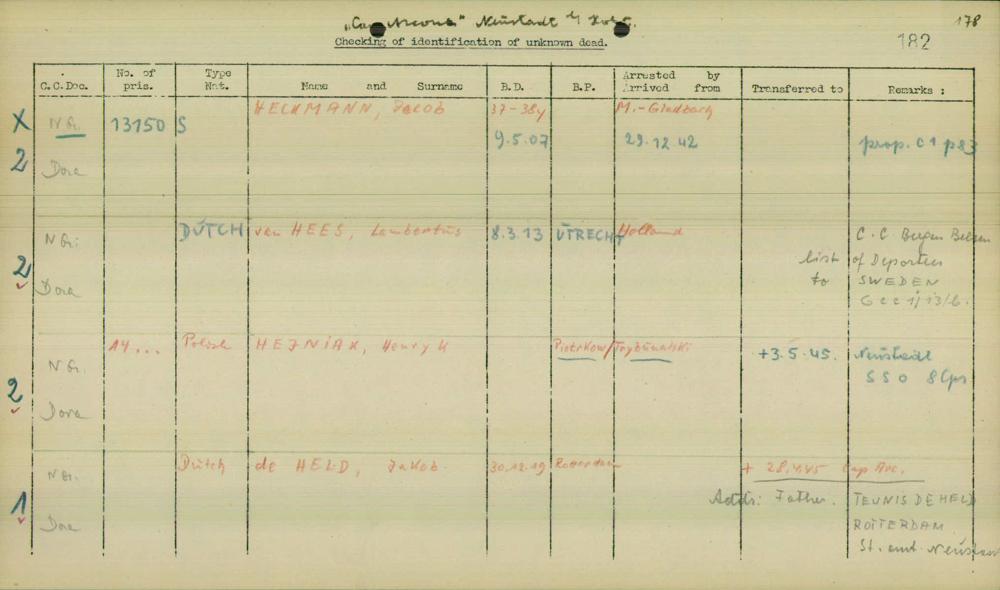 „Cap Arcona" Neustadt i/ Holst.
178
Checking of identification of unknown dead.
182
C.C.Doc. No. of pris. Type Nat. Name and Surname B.D. B.P. Arrested by Arrived from Transferred to Remarks :
X NGr. 13150 S HECKMANN, Jakob 37-38y M.-Gladbach
9.5.07 29.12.42 prop. C1 p83
2 Dora
NGr. DUTCH van HEES, Lambertus 8.3.13 UTRECHT Holland C.C Bergen Belsen
list of Deportees
2 Dora to SWEDEN
Gcc 1/13/6.
14... Polish HEJNIAK, Henryk Piotrkow/Trybunalski +3.5.45. Neustadt
NGr. SSO 8Cps
2 Dora
NGr. Dutch de HELD, Jakob. 30.12.19 Rotterdam + 28.4.45 Cap Arc.
Addr: Father. TEUNIS DE HELD
1 Dora ROTTERDAM
St. amt Neustadt